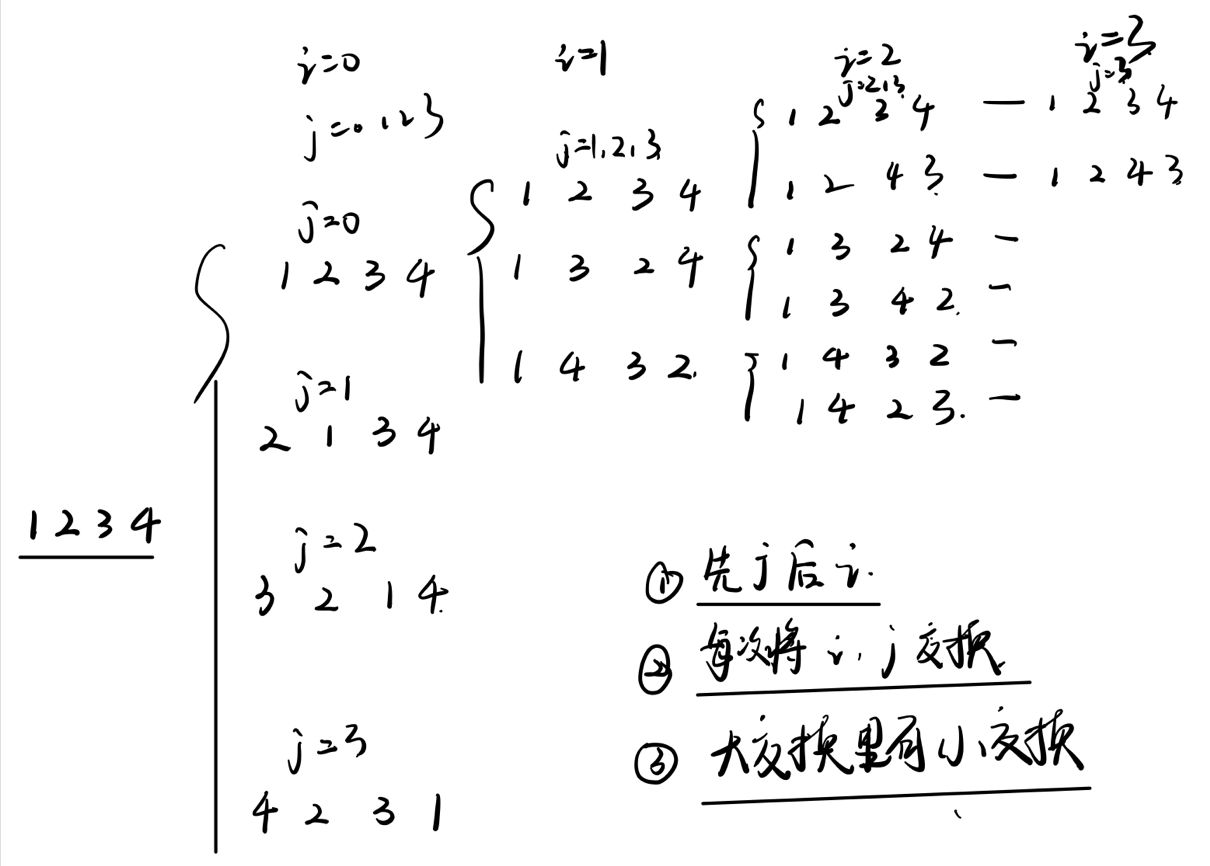 i=0
j=0,1,2,3
j=0
1 2 3 4
j=1
2 1 3 4
1 2 3 4
j=2
3 2 1 4
j=3
4 2 3 1
i=1
j=1,2,3
1 2 3 4
1 3 2 4
1 4 3 2
i=2
j=2,3
1 2 3 4
1 2 4 3
1 3 2 4 —
1 3 4 2 —
1 4 3 2 —
1 4 2 3 —
i=3
j=3
— 1 2 3 4
— 1 2 4 3
① 先j后i.
② 每次将 i, j 交换
③ 大交换里有小交换